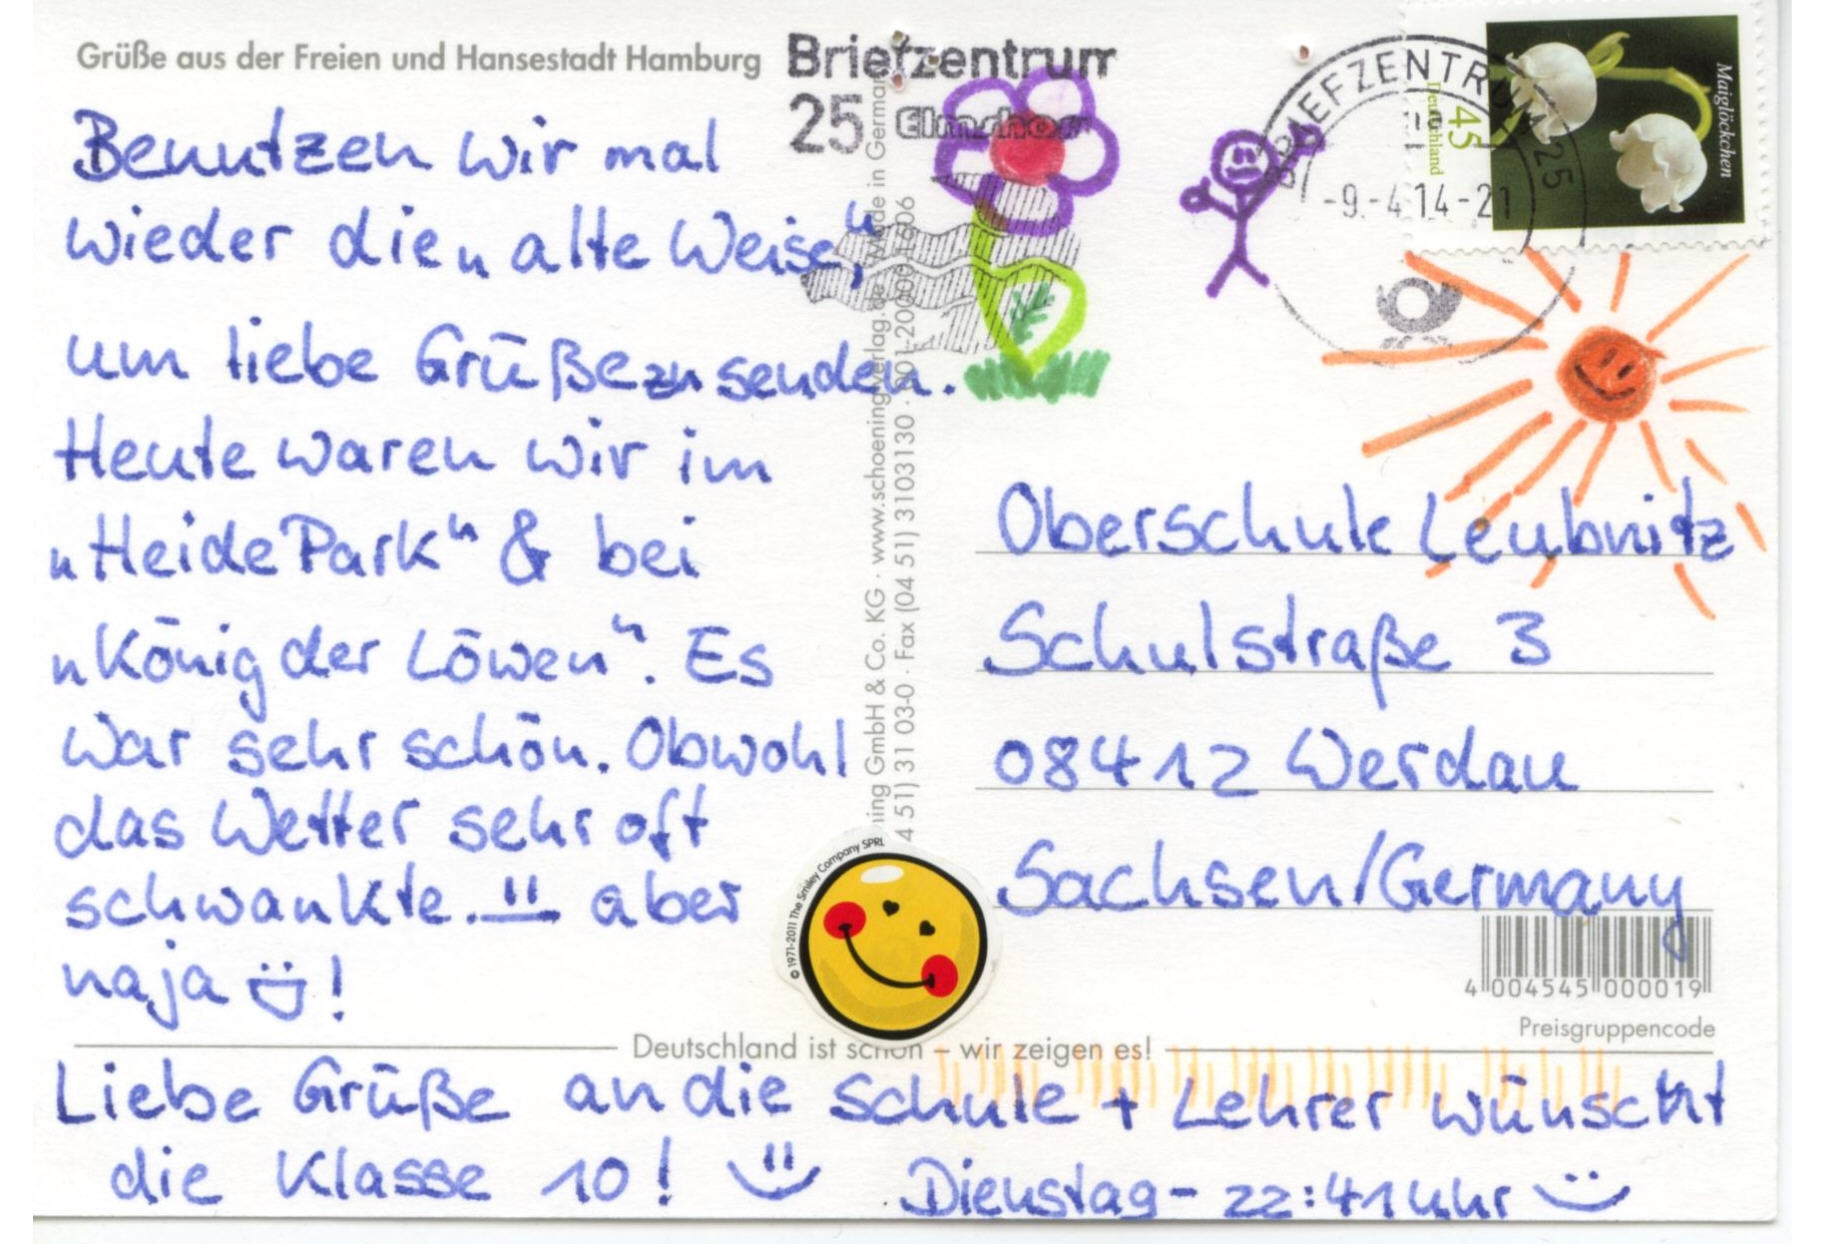 Grüße aus der Freien und Hansestadt Hamburg
Benutzen wir mal
wieder die „alte Weise“,
um liebe Grüße zu senden.
Heute waren wir im
„Heide Park“ & bei
„König der Löwen“. Es
war sehr schön. Obwohl
das Wetter sehr oft
schwankte. aber
naja !
Briefzentrum
25 Elmshor
BRIEFZENTRUM 25
-9.-4.14-21
Maiglöckchen
45
Deutschland
ing GmbH & Co. KG · www.schoeningverlag.de · Made in German
4 51) 31 03-0 · Fax (04 51) 3 10 31 30 ·
© 1971-2011 The Smiley Company SPRL
Oberschule Leubnitz
Schulstraße 3
08412 Werdau
Sachsen/Germany
4 004545 000019
Preisgruppencode
Deutschland ist schön – wir zeigen es!
Liebe Grüße an die Schule + Lehrer wünscht
die Klasse 10!
Dienstag - 22:41 Uhr